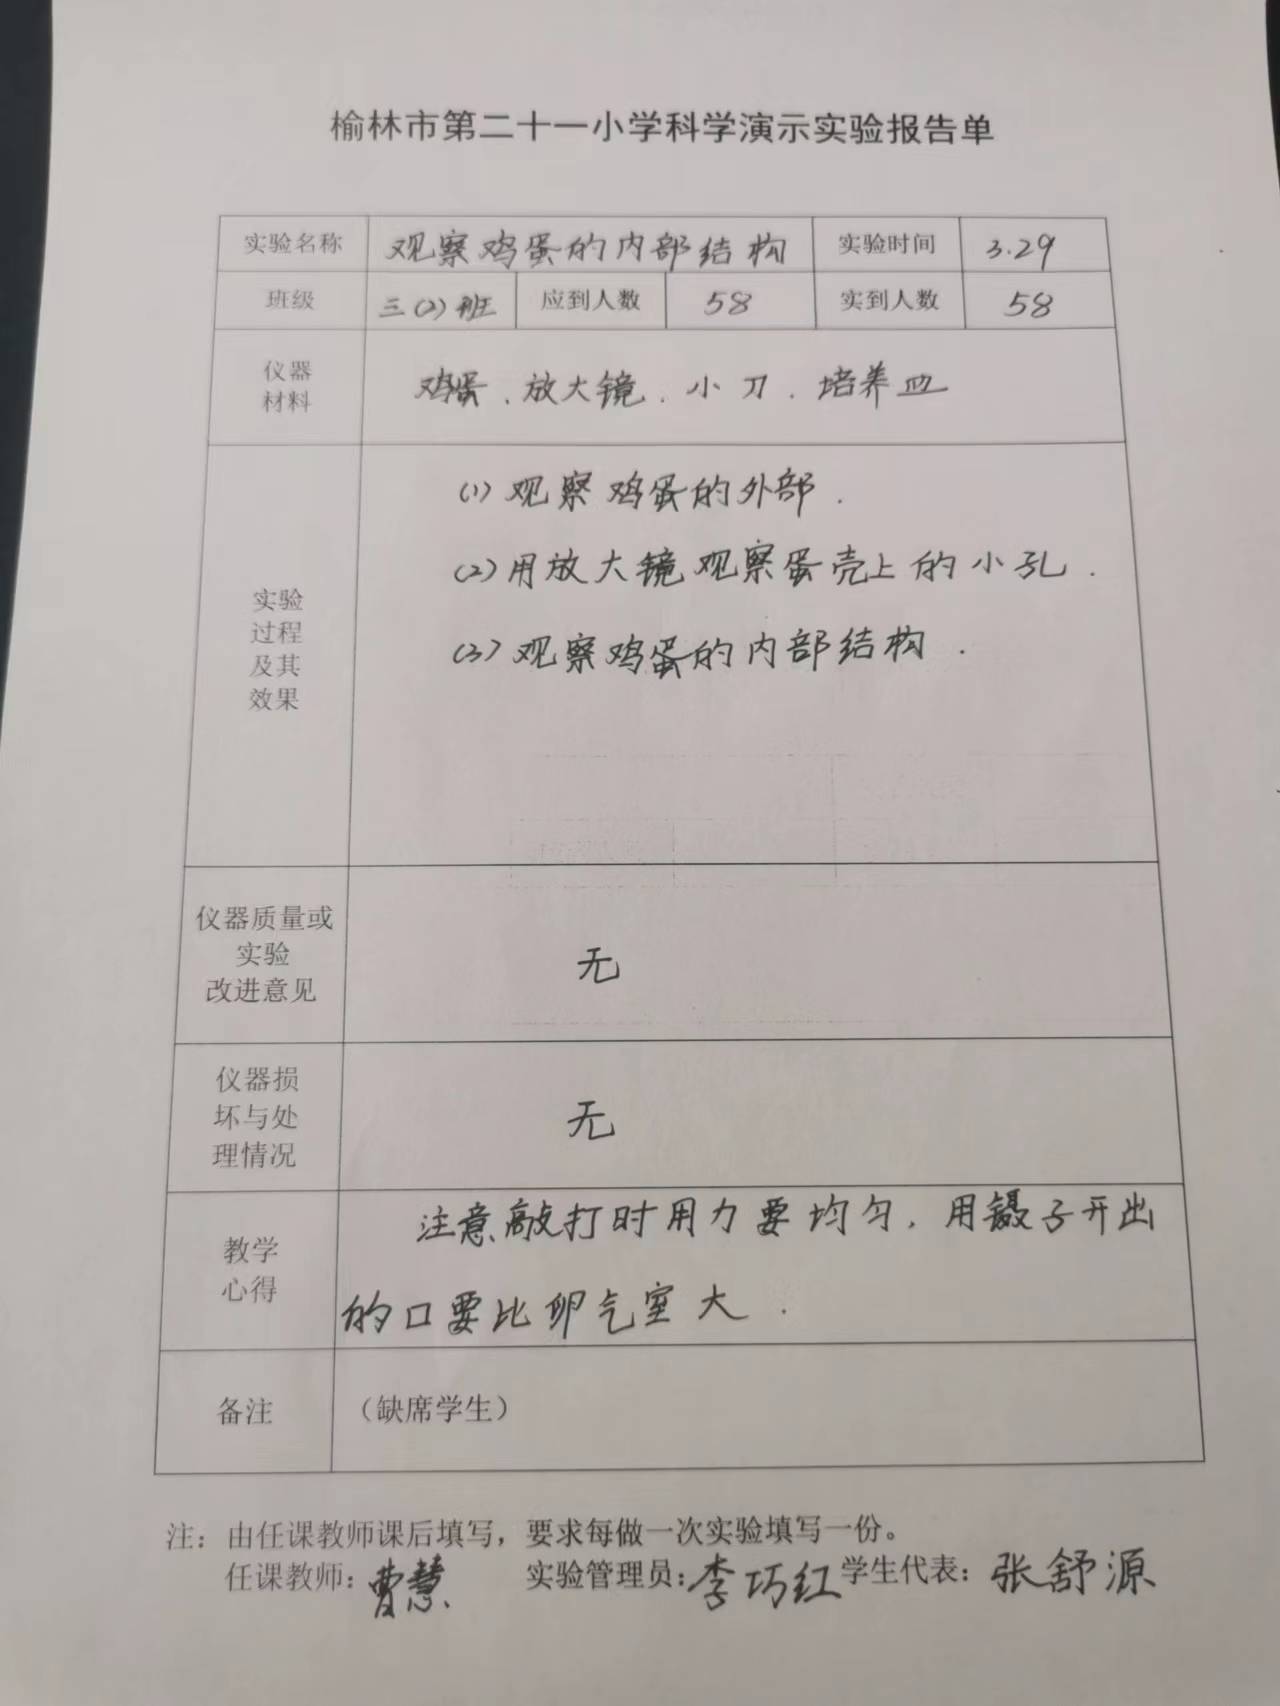 榆林市第二十一小学科学演示实验报告单
实验名称 观察鸡蛋的内部结构 实验时间 3.29
班级 三(2)班 应到人数 58 实到人数 58
仪器
材料
鸡蛋、放大镜、小刀、培养皿
实验
过程
及其
效果
(1)观察鸡蛋的外部.
(2)用放大镜观察蛋壳上的小孔.
(3)观察鸡蛋的内部结构.
仪器质量或
实验
改进意见
无
仪器损
坏与处
理情况
无
教学
心得
注意敲打时用力要均匀,用镊子开出
的口要比卵气室大.
备注 （缺席学生）
注：由任课教师课后填写，要求每做一次实验填写一份。
任课教师：曹慧 实验管理员：李巧红 学生代表：张舒源